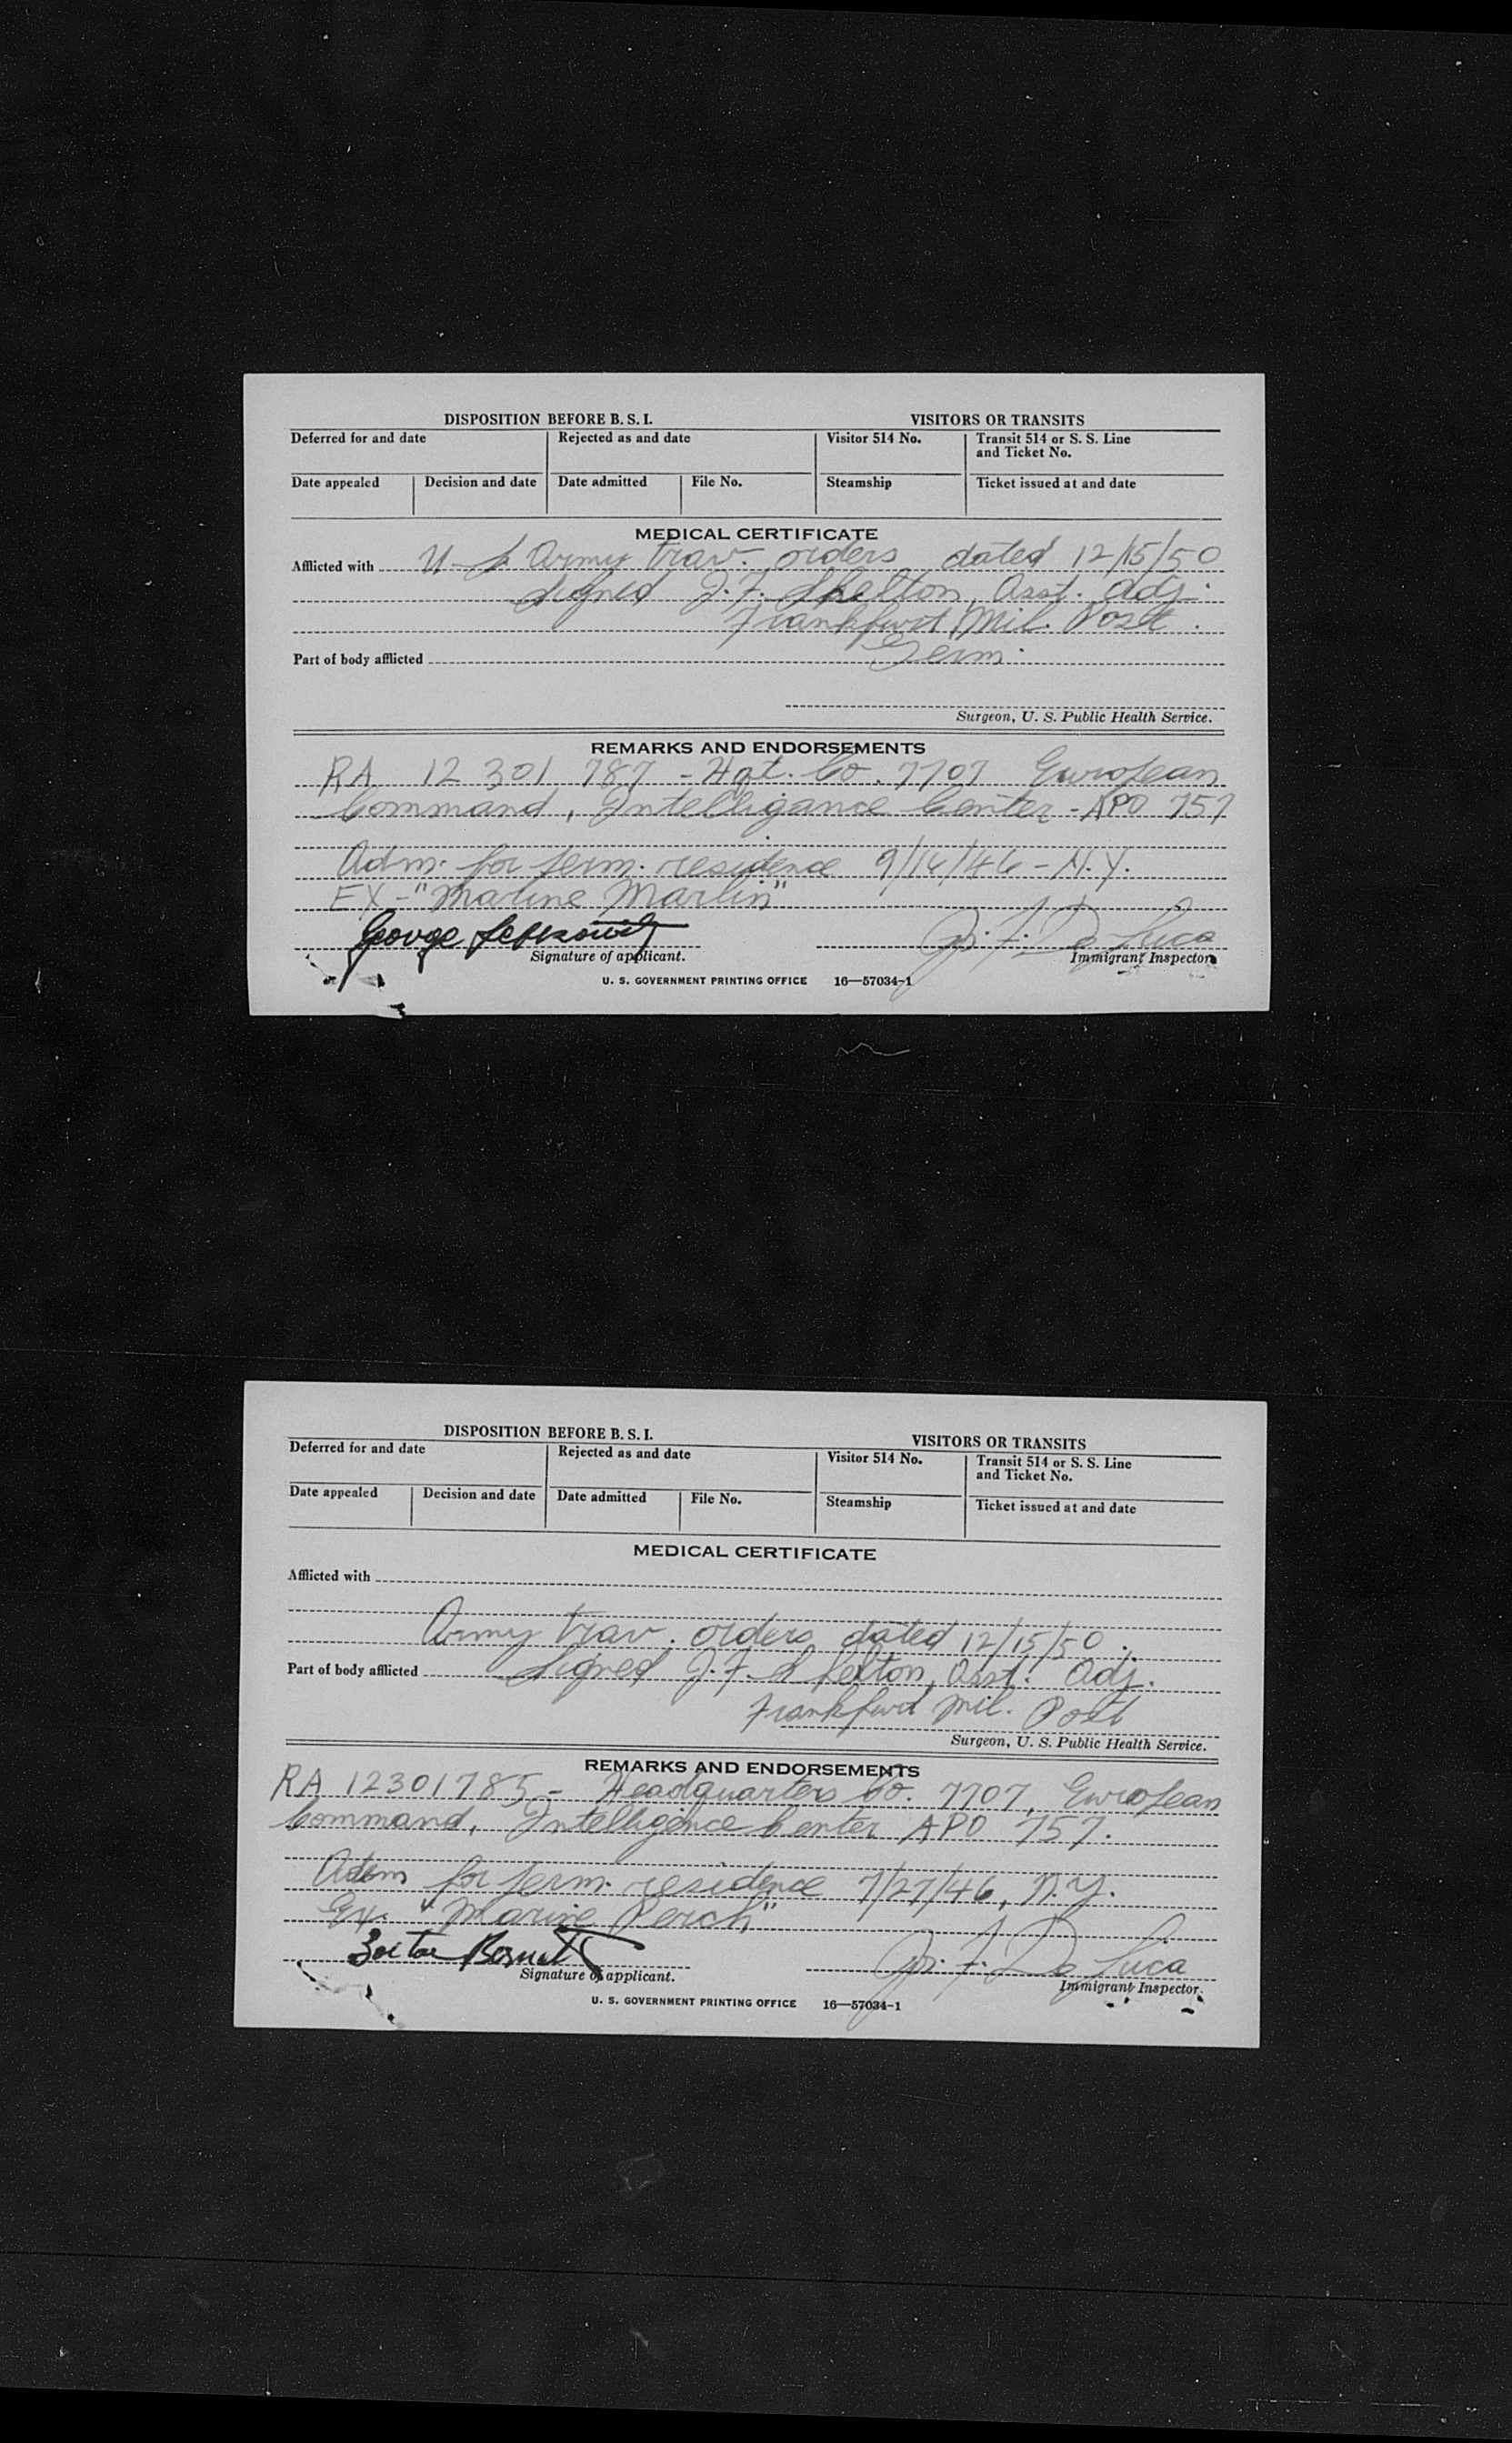 DISPOSITION BEFORE B. S. I.
VISITORS OR TRANSITS
Deferred for and date
Rejected as and date
Visitor 514 No.
Transit 514 or S. S. Line
and Ticket No.
Date appealed
Decision and date
Date admitted
File No.
Steamship
Ticket issued at and date
MEDICAL CERTIFICATE
Afflicted with U S Army trav. orders dated 12/15/50
Signed J. F. Shelton, Asst. Adj.
Frankfurt, Mil. Post.
Part of body afflicted Germ.
Surgeon, U. S. Public Health Service.
REMARKS AND ENDORSEMENTS
RA 12 301 787 - Hqt. Co. 7707 European
Command, Intelligance Center - APO 757
Adm. for perm. residence 9/16/46 - N.Y.
EX - "Marine Marlin"
George
F. De Luca
Signature of applicant.
Immigrant Inspector.
U. S. GOVERNMENT PRINTING OFFICE 16—57034-1
DISPOSITION BEFORE B. S. I.
VISITORS OR TRANSITS
Deferred for and date
Rejected as and date
Visitor 514 No.
Transit 514 or S. S. Line
and Ticket No.
Date appealed
Decision and date
Date admitted
File No.
Steamship
Ticket issued at and date
MEDICAL CERTIFICATE
Afflicted with
Army trav. orders dated 12/15/50.
Part of body afflicted Signed J. F. Shelton, Asst. Adj.
Frankfurt Mil. Post
Surgeon, U. S. Public Health Service.
REMARKS AND ENDORSEMENTS
RA 12301785 - Headquarters Co. 7707, European
Command, Intelligence Center APO 757.
Adm for perm. residence 7/27/46, N.Y.
Ex. "Marine Perch"
F. De Luca
Signature of applicant.
Immigrant Inspector.
U. S. GOVERNMENT PRINTING OFFICE 16—57034-1